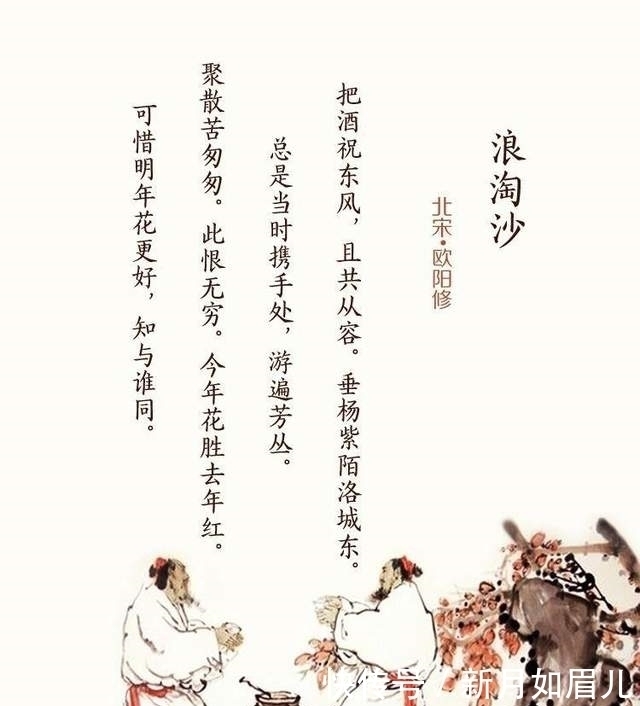 浪淘沙
北宋·欧阳修
把酒祝东风，且共从容。垂杨紫陌洛城东。
总是当时携手处，游遍芳丛。
聚散苦匆匆。此恨无穷。今年花胜去年红。
可惜明年花更好，知与谁同。
快资号／新月如眉儿